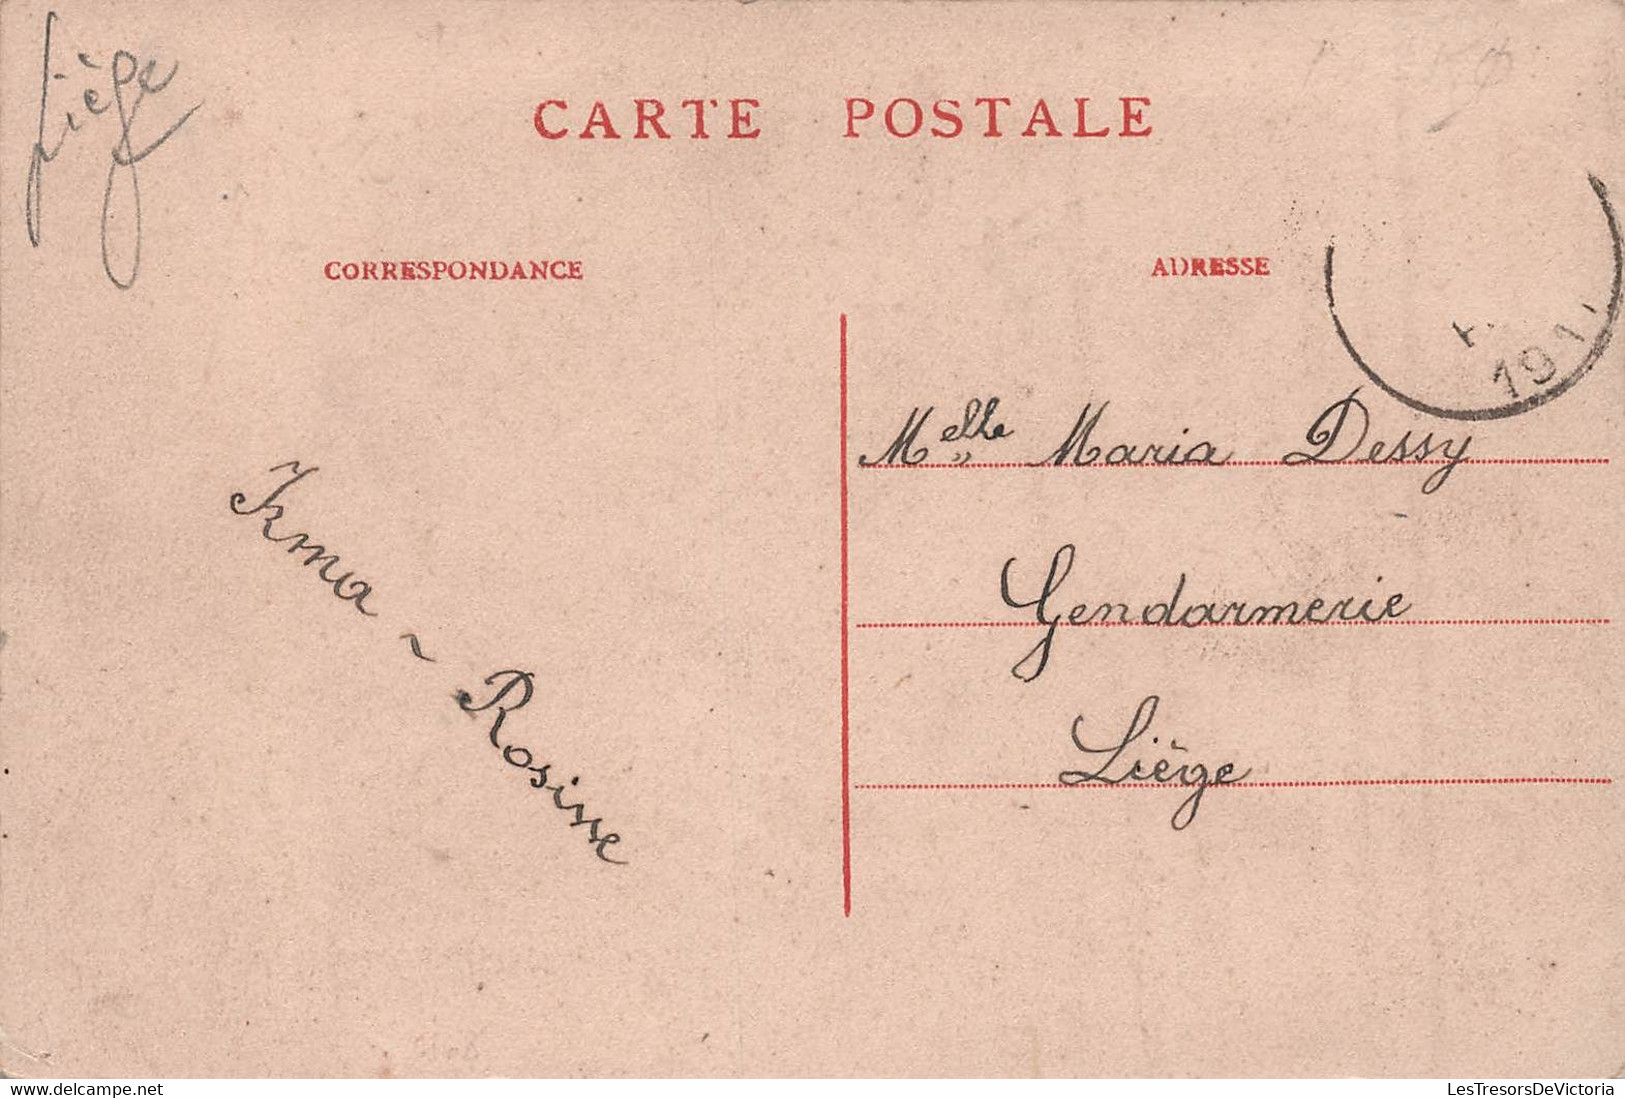 Liège
CARTE POSTALE
CORRESPONDANCE
ADRESSE
191
Melle Maria Dessy
Irma ~ Rosine
Gendarmerie
Liège
delcampe.net
LesTresorsDeVictoria